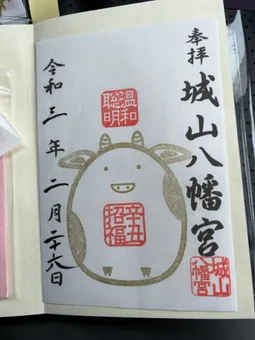 奉拝
城山八幡宮
温和
聡明
辛丑
招福
令和三年二月二十六日
城山
八幡宮